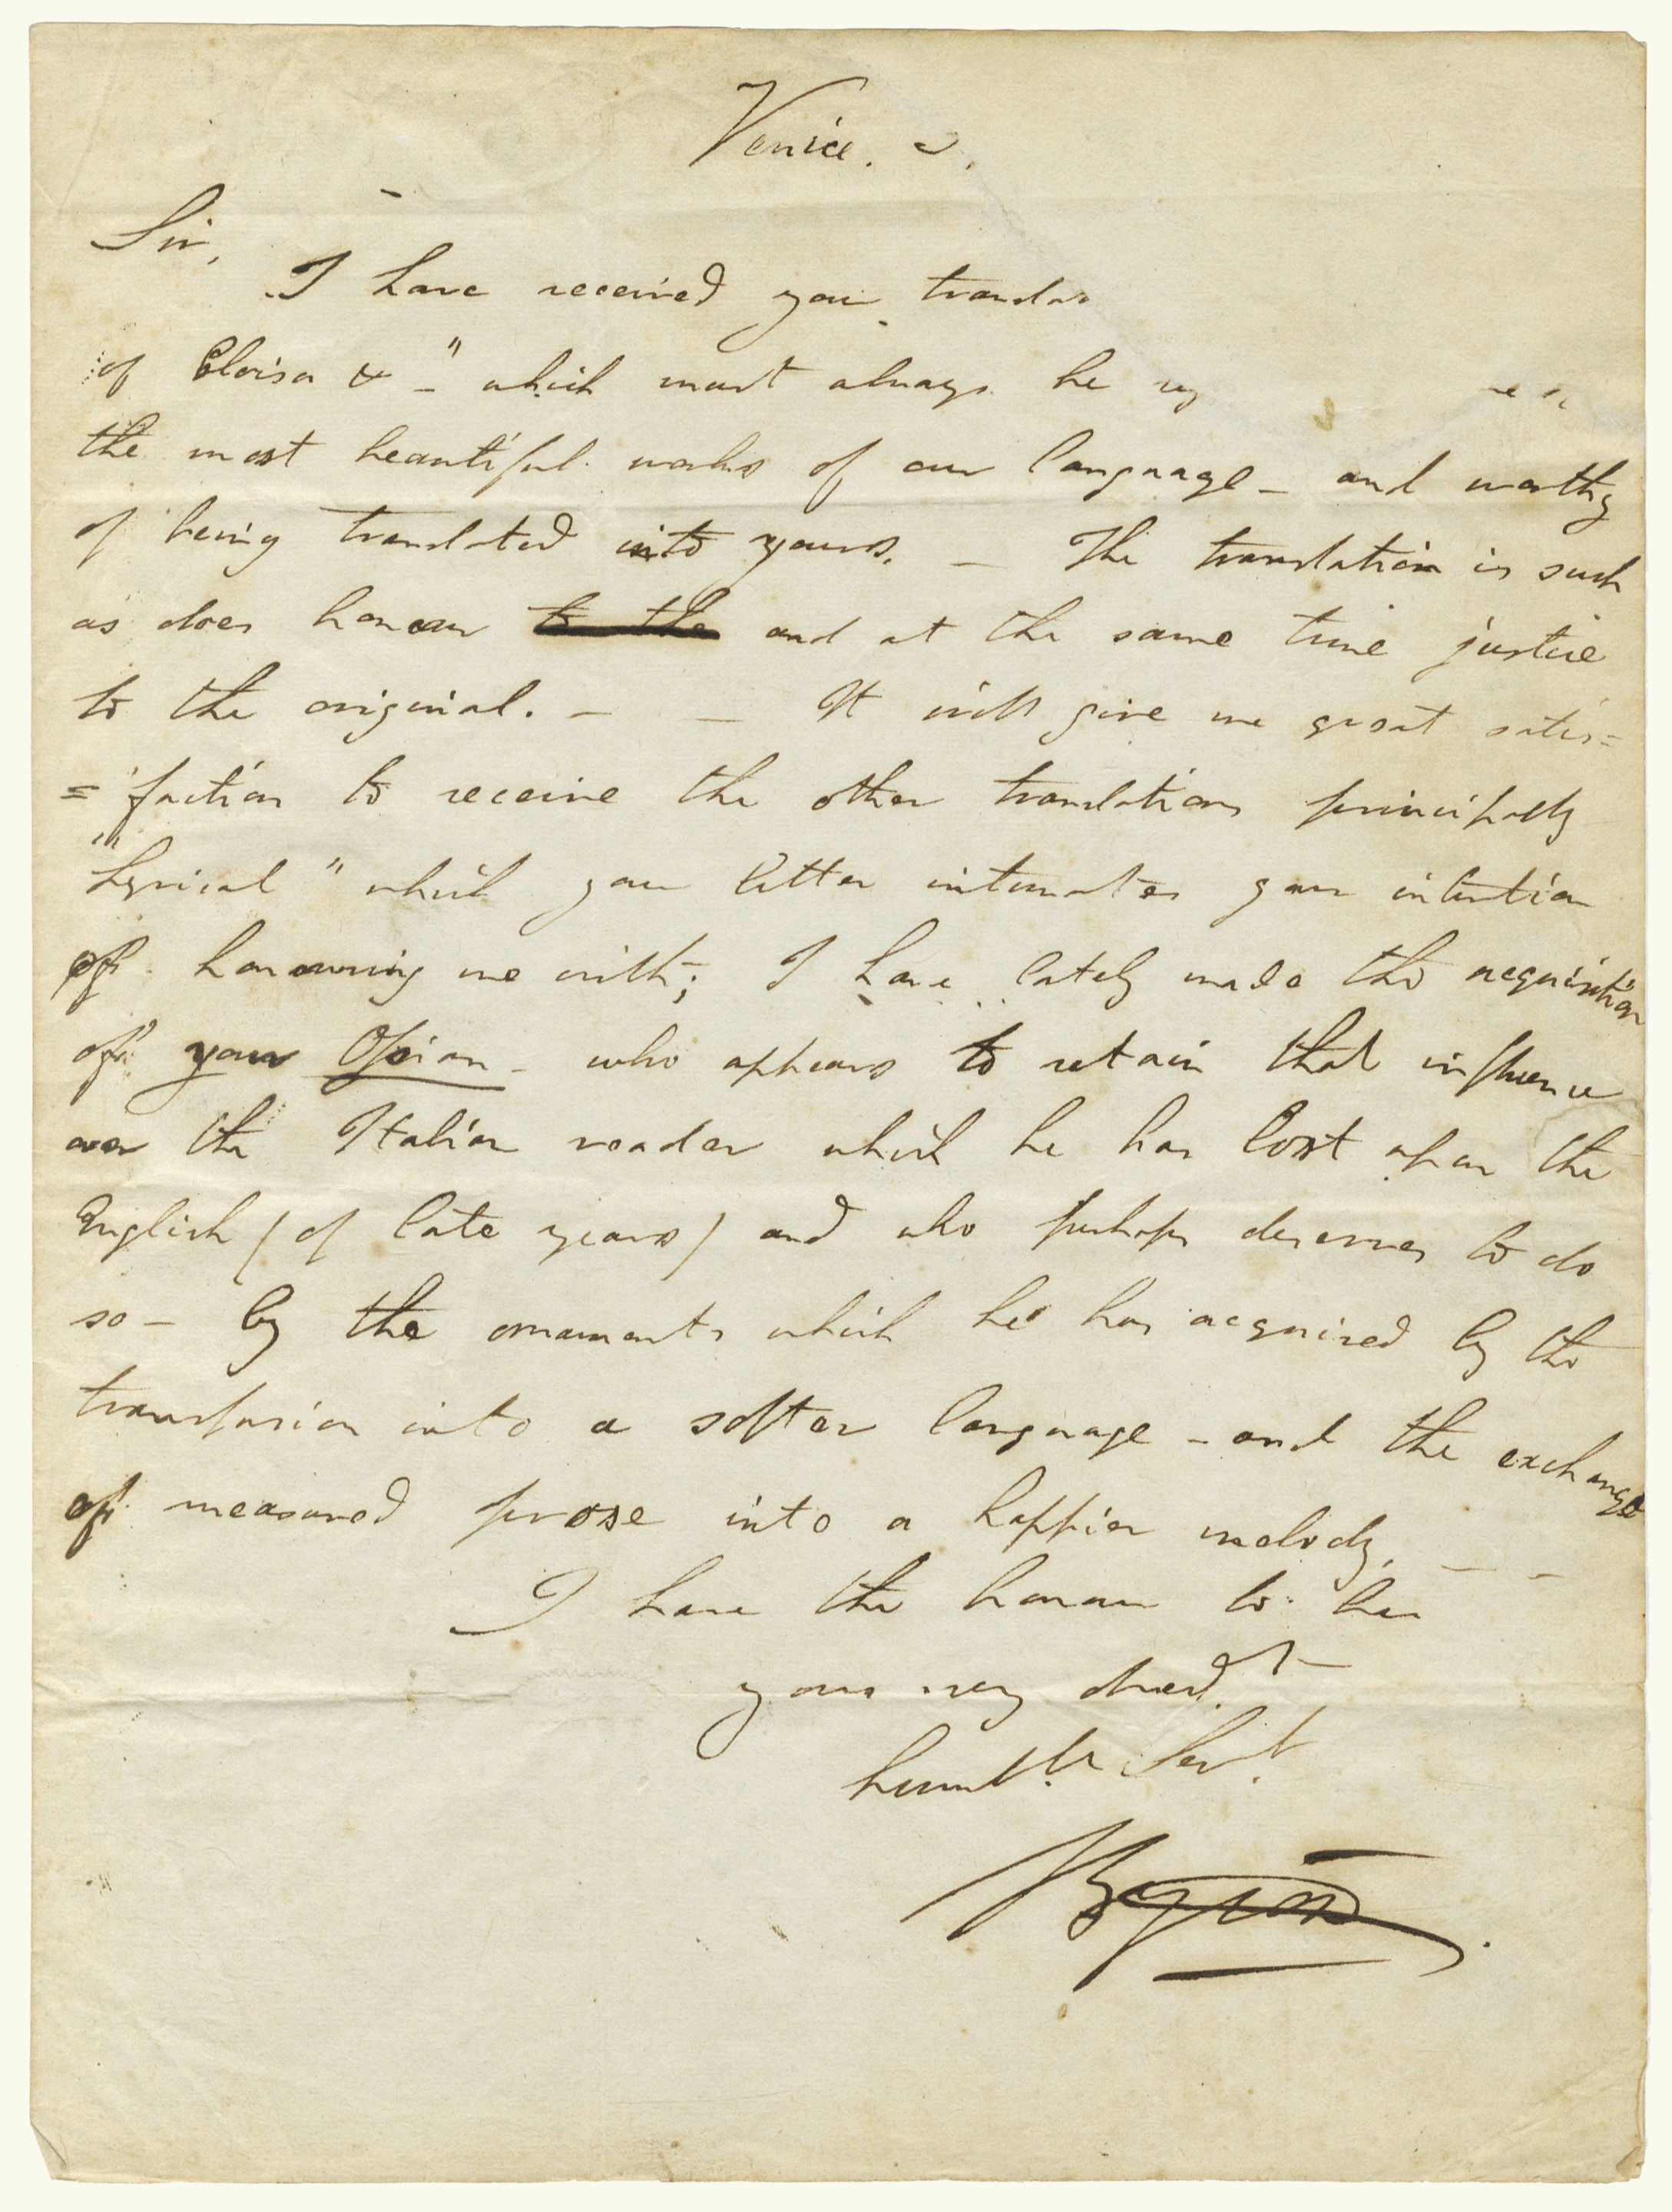 Venice. ~.
Sir,
I have received your
of Eloisa & – " which must always be
the most beautiful works of our language – and worthy
of being translated into yours. – The translation is such
as does honour to the and at the same time justice
to the original. – – It will give me great satis=
=faction to receive the other translations principally
"Lyrical" which your letter intimates your intention
of honouring me with; I have lately made the acquisition
of your Ossian – who appears to retain that influence
over the Italian reader which he has lost upon the
English (of late years) and who perhaps deserves to do
so – by the ornaments which he has acquired by the
transfusion into a softer language – and the exchange
of measured prose into a happier melody. – –
I have the honour to be
your very obed.t –
humb.le Ser.t
Byron.